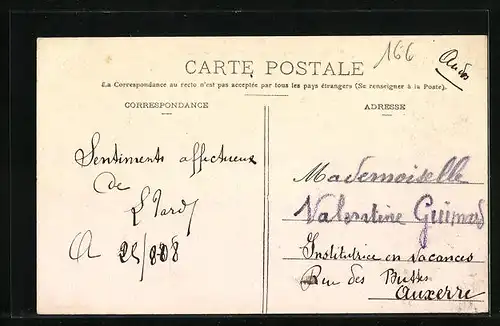 166
CARTE POSTALE
La Correspondance au recto n'est pas acceptée par tous les pays étrangers (Se renseigner à la Poste).
CORRESPONDANCE
ADRESSE
Sentiments affectueux
de
Mademoiselle
Valentine Guimard
Institutrice en vacances
Rue des Buttes
Auxerre